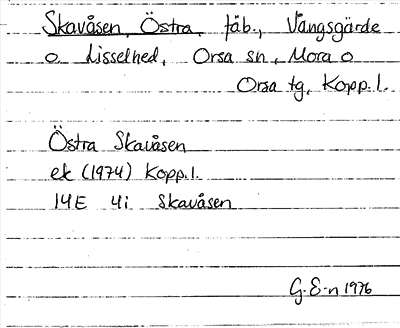 Skavåsen, Östra, fäb., Vångsgärde
o. Lisselhed, Orsa sn, Mora o
Orsa tg, Kopp.l.
Östra Skavåsen
ek (1974) Kopp.l.
14E 4i Skavåsen
G.E-n 1976